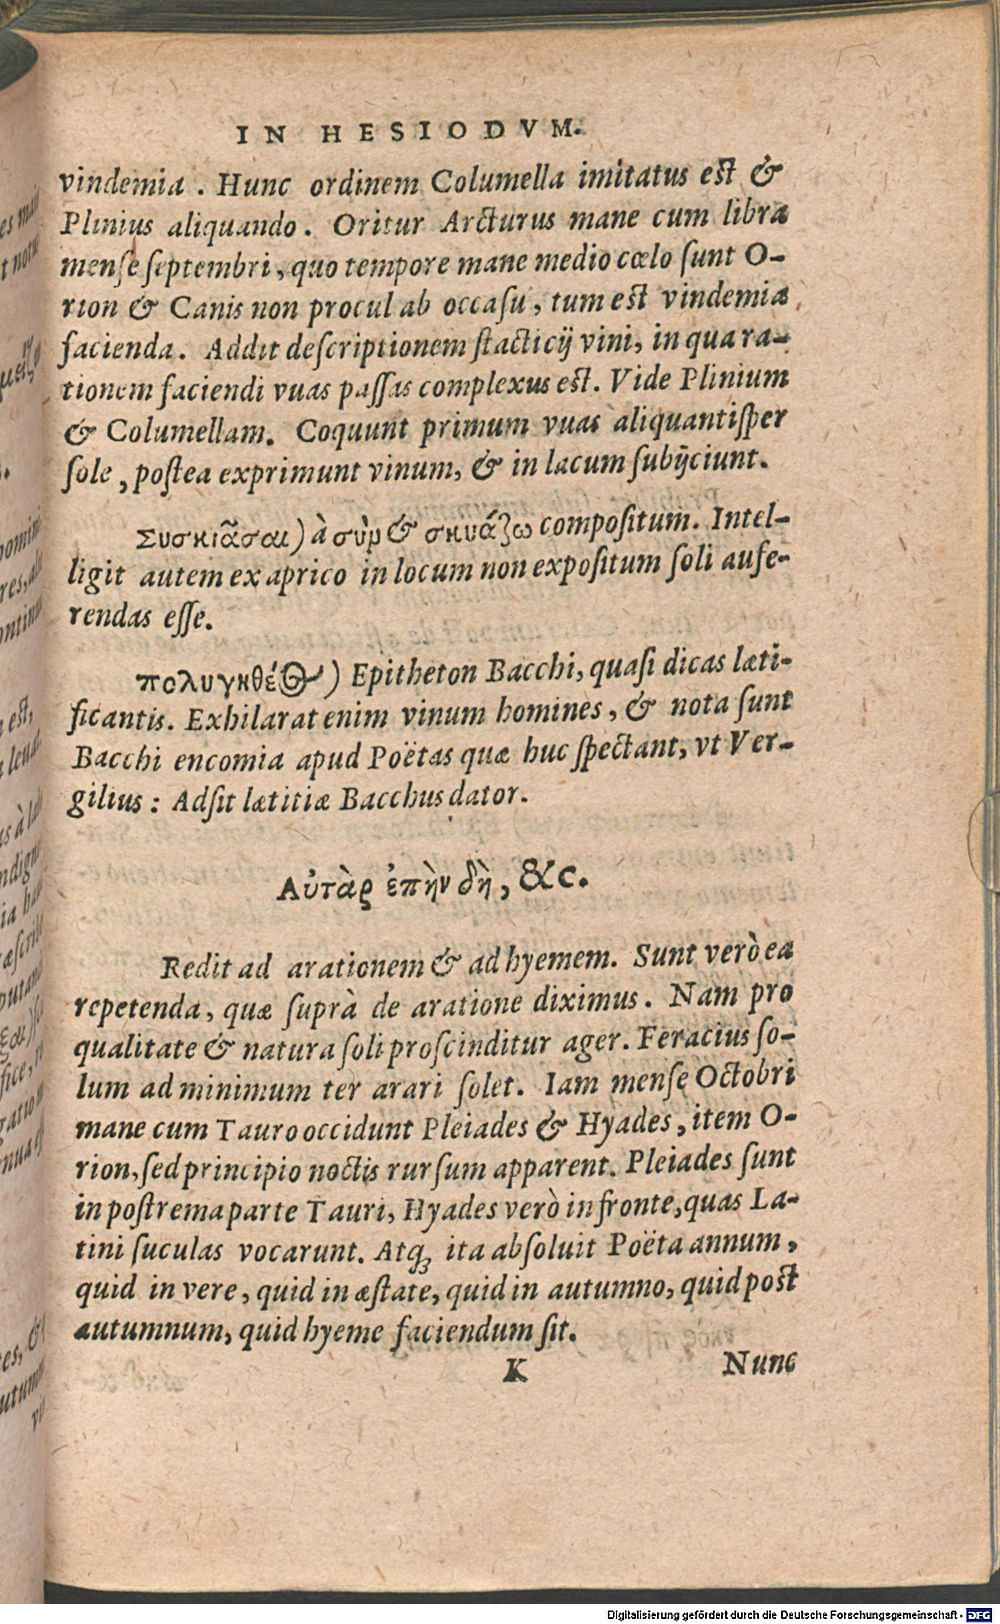 IN HESIODVM.
vindemia. Hunc ordinem Columella imitatus est &
Plinius aliquando. Oritur Arcturus mane cum libra
mense septembri, quo tempore mane medio cœlo sunt O-
rion & Canis non procul ab occasu, tum est vindemia
facienda. Addit descriptionem stacticij vini, in qua ra-
tionem faciendi vuas passas complexus est. Vide Plinium
& Columellam. Coquunt primum vuas aliquantisper
sole, postea exprimunt vinum, & in lacum subijciunt.
Συσκιᾶσαι) à σὺμ & σκυάζω compositum. Intel-
ligit autem ex aprico in locum non expositum soli aufe-
rendas esse.
πολυγηθέος) Epitheton Bacchi, quasi dicas læti-
ficantis. Exhilarat enim vinum homines, & nota sunt
Bacchi encomia apud Poëtas quæ huc spectant, vt Ver-
gilius: Adsit lætitiæ Bacchus dator.
Αὐτὰρ ἐπὴν δὴ, &c.
Redit ad arationem & ad hyemem. Sunt verò ea
repetenda, quæ suprà de aratione diximus. Nam pro
qualitate & natura soli proscinditur ager. Feracius so-
lum ad minimum ter arari solet. Iam mense Octobri
mane cum Tauro occidunt Pleiades & Hyades, item O-
rion, sed principio noctis rursum apparent. Pleiades sunt
in postrema parte Tauri, Hyades verò in fronte, quas La-
tini suculas vocarunt. Atq; ita absoluit Poëta annum,
quid in vere, quid in æstate, quid in autumno, quid post
autumnum, quid hyeme faciendum sit.
K Nunc
Digitalisierung gefördert durch die Deutsche Forschungsgemeinschaft - DFG